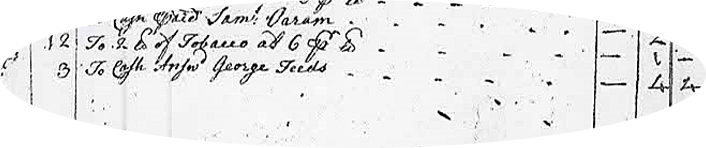 Cash Paid Sam.l Daram - - - -
12 To 2 lb of Tobacco at 6 p.r lb - - - - — 1 —
3 To Cash Answ.d George Teeds - - - - — 4 4